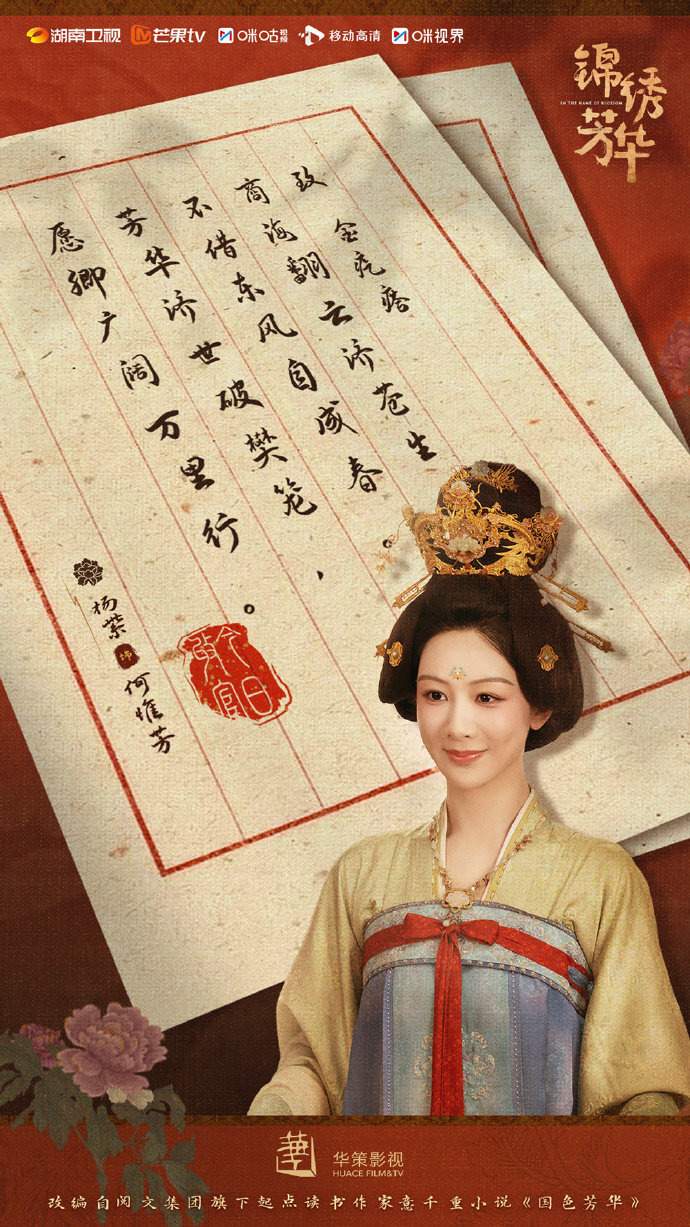 湖南卫视 芒果tv 咪咕视频 移动高清 咪视界
锦绣芳华
IN THE NAME OF BLOSSOM
致 金疙瘩
商海翻云济苍生
不借东风自成春。
芳华济世破樊笼，
愿卿广阔万里行。
杨紫 饰 何惟芳
华策影视
HUACE FILM&TV
改编自阅文集团旗下起点读书作家意千重小说《国色芳华》